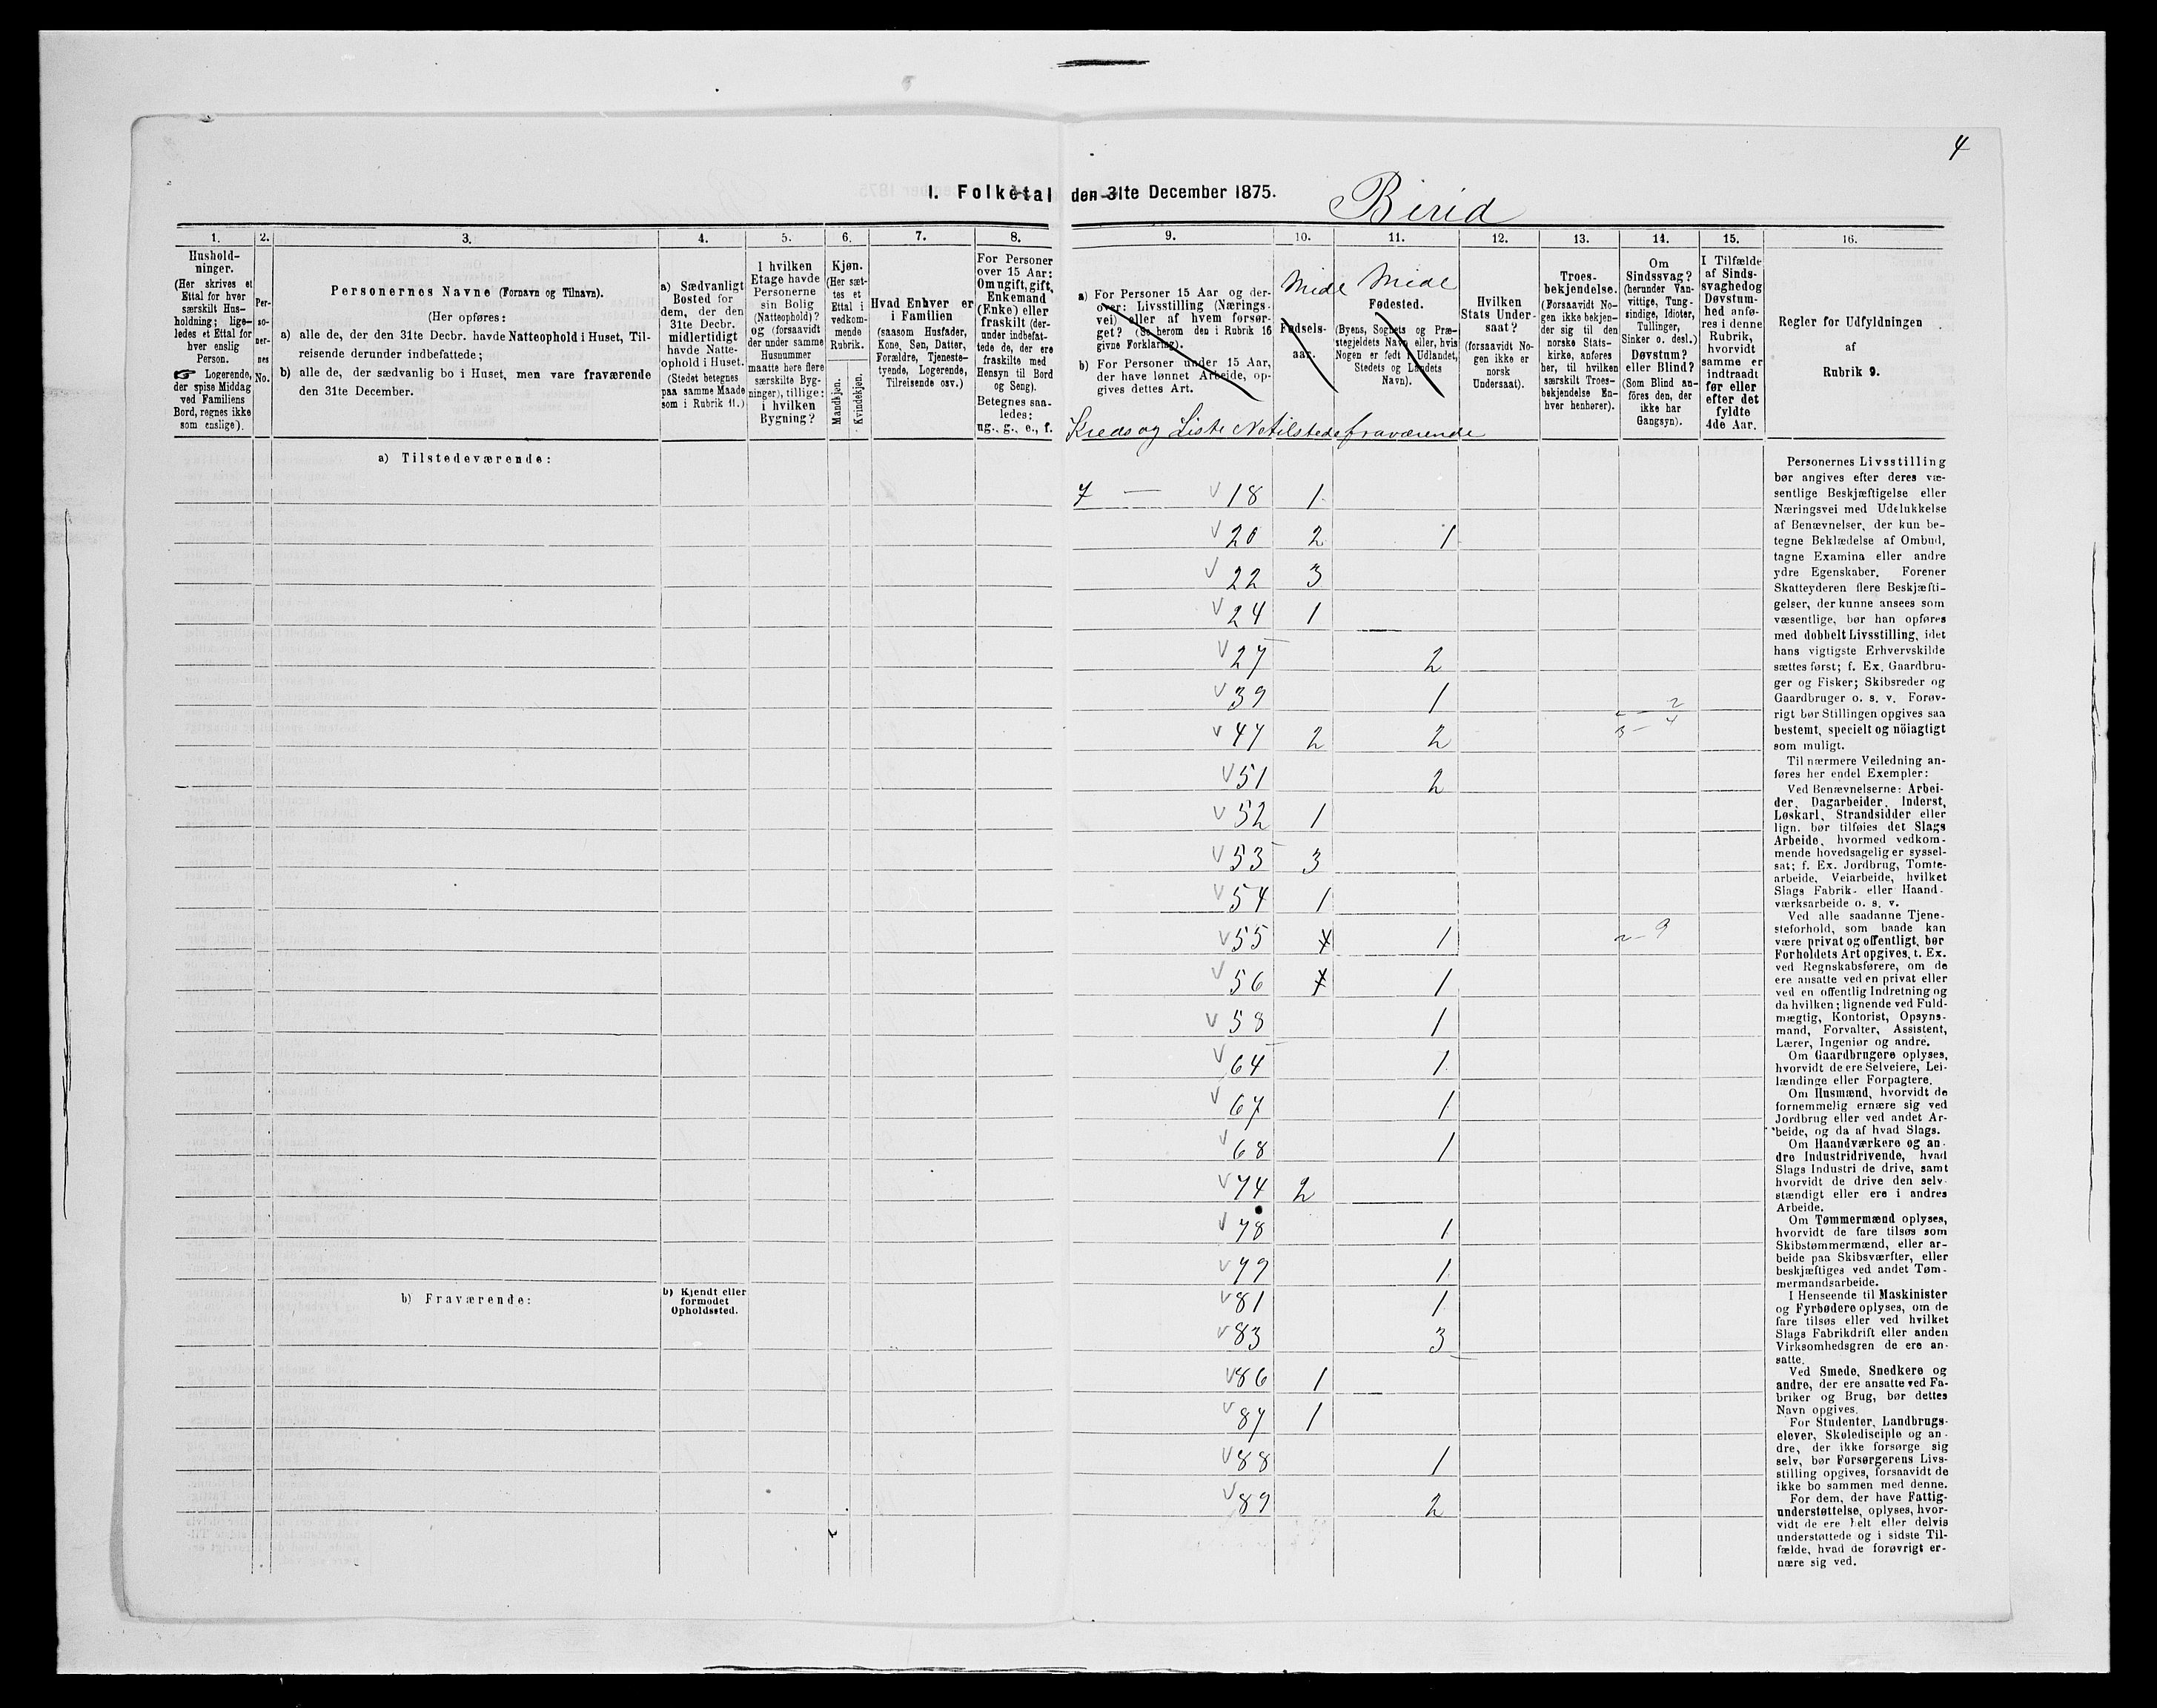 4
I. Folketal den 31te December 1875.
Birid
1. 2. 3. 4. 5. 6. 7. 8. 9. 10. 11. 12. 13. 14. 15. 16.
Hushold-
ninger.
(Her skrives et
Ettal for hver
særskilt Hus-
holdning; lige-
ledes et Ettal for
hver enslig
Person.
☞ Logerende,
der spise Middag
ved Familiens
Bord, regnes ikke
som enslige).
Per-
so-
ner-
nes
No.
Personernes Navne (Fornavn og Tilnavn).
(Her opføres:
a) alle de, der den 31te Decbr. havde Natteophold i Huset, Til-
reisende derunder indbefattede;
b) alle de, der sædvanlig bo i Huset, men vare fraværende
den 31te December.
a) Sædvanligt
Bosted for
dem, der den
31te Decbr.
midlertidigt
havde Natte-
ophold i Huset.
(Stedet betegnes
paa samme Maade
som i Rubrik 11.)
I hvilken
Etage havde
Personerne
sin Bolig
(Natteophold)?
og (forsaavidt
der under samme
Husnummer
maatte høre flere
særskilte Byg-
ninger), tillige:
i hvilken
Bygning?
Kjøn.
(Her sæt-
tes et
Ettal i
vedkom-
mende
Rubrik.
Mandkjøn.
Kvindekjøn.
Hvad Enhver er
i Familien
(saasom Husfader,
Kone, Søn, Datter,
Forældre, Tjeneste-
tyende, Logerende,
Tilreisende osv.)
For Personer
over 15 Aar:
Om ugift, gift,
Enkemand
(Enke) eller
fraskilt (der-
under indbefat-
tede de, der ere
fraskilte med
Hensyn til Bord
og Seng).
Betegnes saa-
ledes:
ug., g., e., f.
a) For Personer 15 Aar og der-
over: Livsstilling (Nærings-
vei) eller af hvem forsør-
get? (Se herom den i Rubrik 16
givne Forklaring).
b) For Personer under 15 Aar,
der have lønnet Arbeide, op-
gives dettes Art.
Midl
Fødsels-
aar.
Midl
Fødested.
(Byens, Sognets og Præ-
stegjeldets Navn eller, hvis
Nogen er født i Udlandet,
Stedets og Landets
Navn).
Hvilken
Stats Under-
saat?
(forsaavidt No-
gen ikke er
norsk
Undersaat).
Troes-
bekjendelse.
(Forsaavidt No-
gen ikke bekjen-
der sig til den
norske Stats-
kirke, anføres
her, til hvilken
særskilt Troes-
bekjendelse En-
hver henhører).
Om
Sindssvag?
(herunder Van-
vittige, Tung-
sindige, Idioter,
Tullinger,
Sinker o. desl.)
Døvstum?
eller Blind?
(Som Blind an-
føres den, der
ikke har
Gangsyn).
I Tilfælde
af Sinds-
svaghed og
Døvstum-
hed anfø-
res i denne
Rubrik,
hvorvidt
samme er
indtraadt
før eller
efter det
fyldte
4de Aar.
Regler for Udfyldningen
af
Rubrik 9.
Kreds og Liste No tilstede fraværende
a) Tilstedeværende:
7 — v 18 1
v 20 2 1
v 22 3
v 24 1
v 27 2
v 39 1
v 47 2 2
v 51 2
v 52 1
v 53 3
v 54 1
v 55 1
v 56 1
v 58 1
v 64 1
v 67 1
v 68 1
v 74 2
v 78 1
v 79 1
v 81 1
v 83 3
v 86 1
v 87 1
v 88 1
v 89 2
b) Fraværende:
b) Kjendt eller
formodet
Opholdssted.
Personernes Livsstilling
bør angives efter deres væ-
sentlige Beskjæftigelse eller
Næringsvei med Udelukkelse
af Benævnelser, der kun be-
tegne Beklædelse af Ombud,
tagne Examina eller andre
ydre Egenskaber. Forener
Skatteyderen flere Beskjæfti-
gelser, der kunne ansees som
væsentlige, bør han opføres
med dobbelt Livsstilling, idet
hans vigtigste Erhvervskilde
sættes først; f. Ex. Gaardbru-
ger og Fisker; Skibsreder og
Gaardbruger o. s. v. Forøv-
rigt bør Stillingen opgives saa
bestemt, specielt og nöiagtigt
som muligt.
Til nærmere Veiledning an-
føres her endel Exempler:
Ved Benævnelserne: Arbei-
der, Dagarbeider, Inderst,
Løskarl, Strandsidder eller
lign. bør tilføies det Slags
Arbeide, hvormed vedkom-
mende hovedsagelig er syssel-
sat; f. Ex. Jordbrug, Tomte-
arbeide, Veiarbeide, hvilket
Slags Fabrik- eller Haand-
værksarbeide o. s. v.
Ved alle saadanne Tjene-
steforhold, som baade kan
være privat og offentligt, bør
Forholdets Art opgives, t. Ex.
ved Regnskabsførere, om de
ere ansatte ved en privat eller
ved en offentlig Indretning og
da hvilken; lignende ved Fuld-
mægtig, Kontorist, Opsyns-
mand, Forvalter, Assistent,
Lærer, Ingeniør og andre.
Om Gaardbrugere oplyses,
hvorvidt de ere Selveiere, Lei-
lændinge eller Forpagtere.
Om Husmænd, hvorvidt de
fornemmelig ernære sig ved
Jordbrug eller ved andet Ar-
beide, og da af hvad Slags.
Om Haandværkere og an-
dre Industridrivende, hvad
Slags Industri de drive, samt
hvorvidt de drive den selv-
stændigt eller ere i andres
Arbeide.
Om Tømmermænd oplyses,
hvorvidt de fare tilsøs som
Skibstømmermænd, eller ar-
beide paa Skibsværfter, eller
beskjæftiges ved andet Tøm-
mermandsarbeide.
I Henseende til Maskinister
og Fyrbødere oplyses, om de
fare tilsøs eller ved hvilket
Slags Fabrikdrift eller anden
Virksomhedsgren de ere an-
satte.
Ved Smede, Snedkere og
andre, der ere ansatte ved Fa-
briker og Brug, bør dettes
Navn opgives.
For Studenter, Landbrugs-
elever, Skoledisciple og an-
dre, der ikke forsørge sig
selv, bør Forsørgerens Livs-
stilling opgives, forsaavidt de
ikke bo sammen med denne.
For dem, der have Fattig-
understøttelse, oplyses, hvor-
vidt de ere helt eller delvis
understøttede og i sidste Til-
fælde, hvad de forøvrigt er-
nære sig ved.